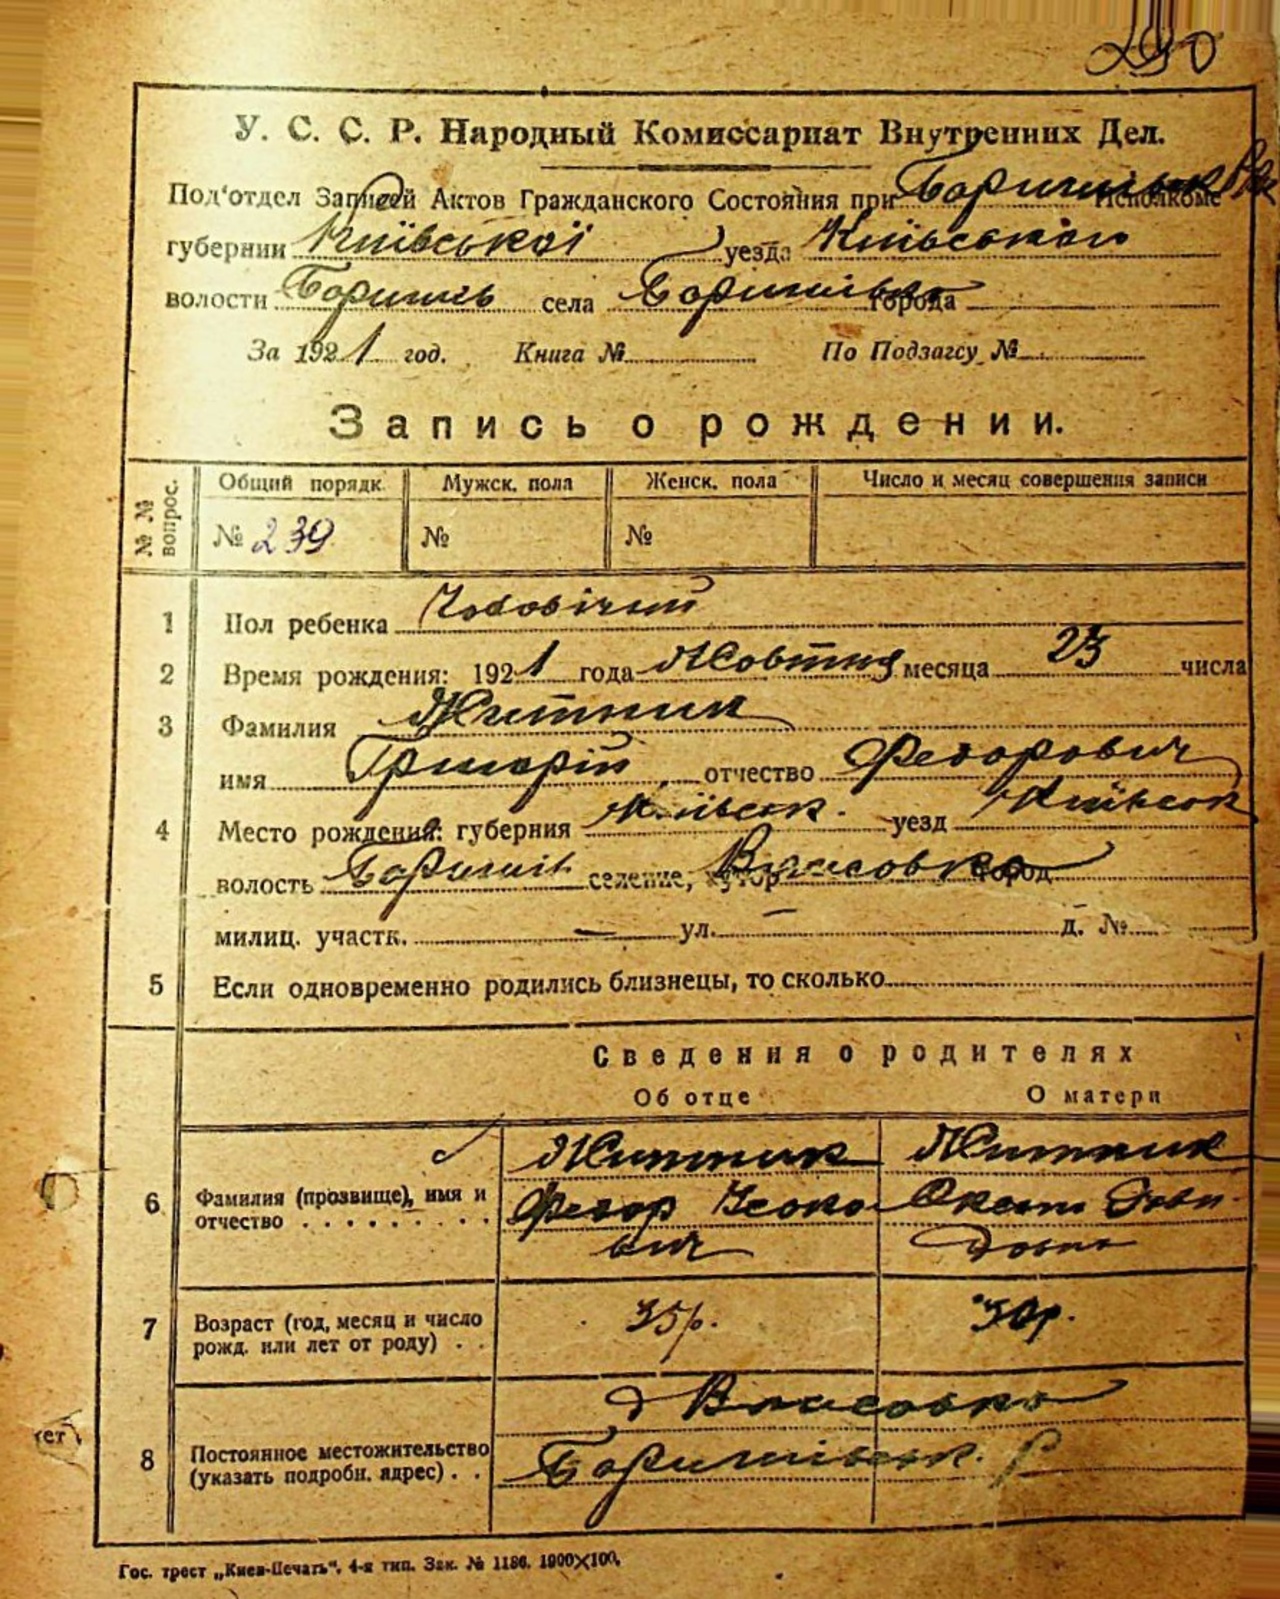 290
У. С. С. Р. Народный Комиссариат Внутренних Дел.
Под'отдел Записей Актов Гражданского Состояния при Исполкоме
губернии Київської уезда Київського
волости Боришль села города
За 1921 год. Книга № По Подзагсу №
Запись о рождении.
№ № вопрос. Общий порядк. Мужск. пола Женск. пола Число и месяц совершения записи
№ 239 № №
1 Пол ребенка Чоловічий
2 Время рождения: 1921 года Жовтня месяца 23 числа
3 Фамилия Житник
имя Григорій отчество Федорович
4 Место рождения: губерния Київськ. уезд Київськ
волость селение, хутор Власовка город
милиц. участк. — ул. — д. №
5 Если одновременно родились близнецы, то сколько
Сведения о родителях
Об отце О матери
Житник Житник
6 Фамилия (прозвище), имя и отчество Федор Оксана
7 Возраст (год, месяц и число рожд. или лет от роду) 35 р. 30 р.
д Власовка
8 Постоянное местожительство (указать подробн. адрес)
Гос. трест „Киев-Печать". 4-я тип. Зак. № 1186. 1000×100.